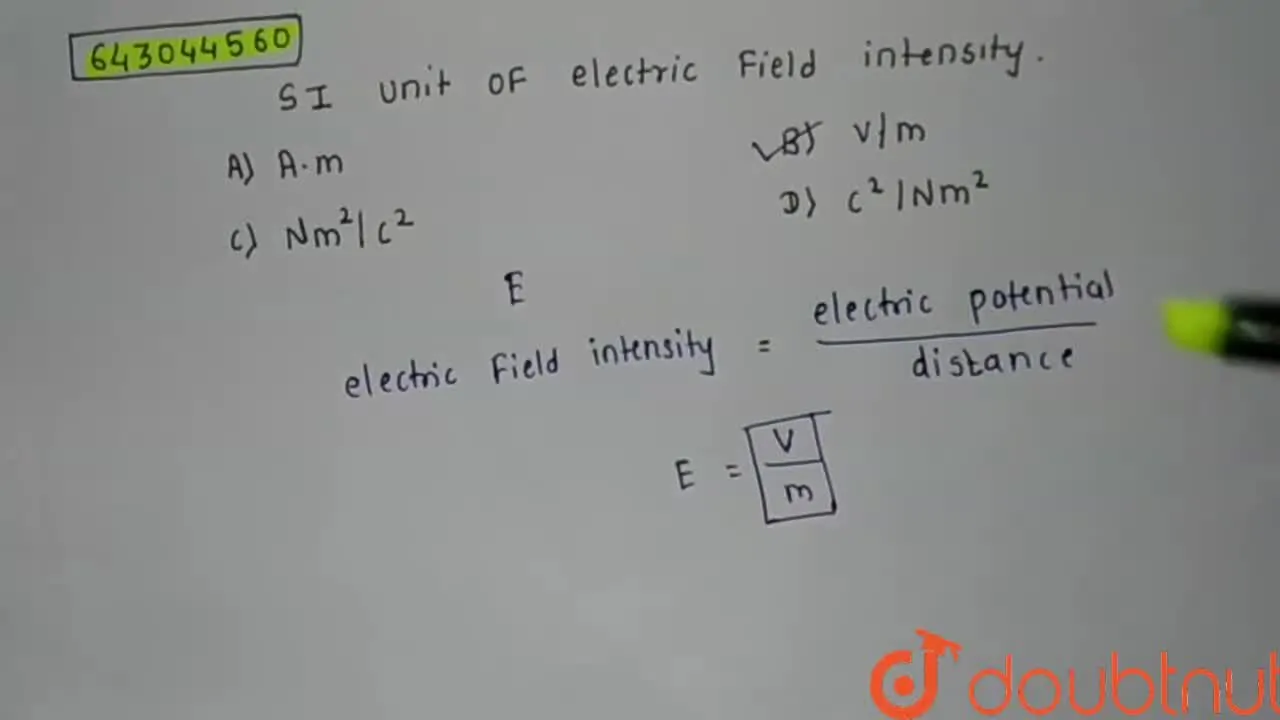 643044560
SI unit of electric Field intensity.
A) A.m
B) V/m
C) Nm²/c²
D) c²/Nm²
E
electric Field intensity = electric potential / distance
E = V / m
doubtnut